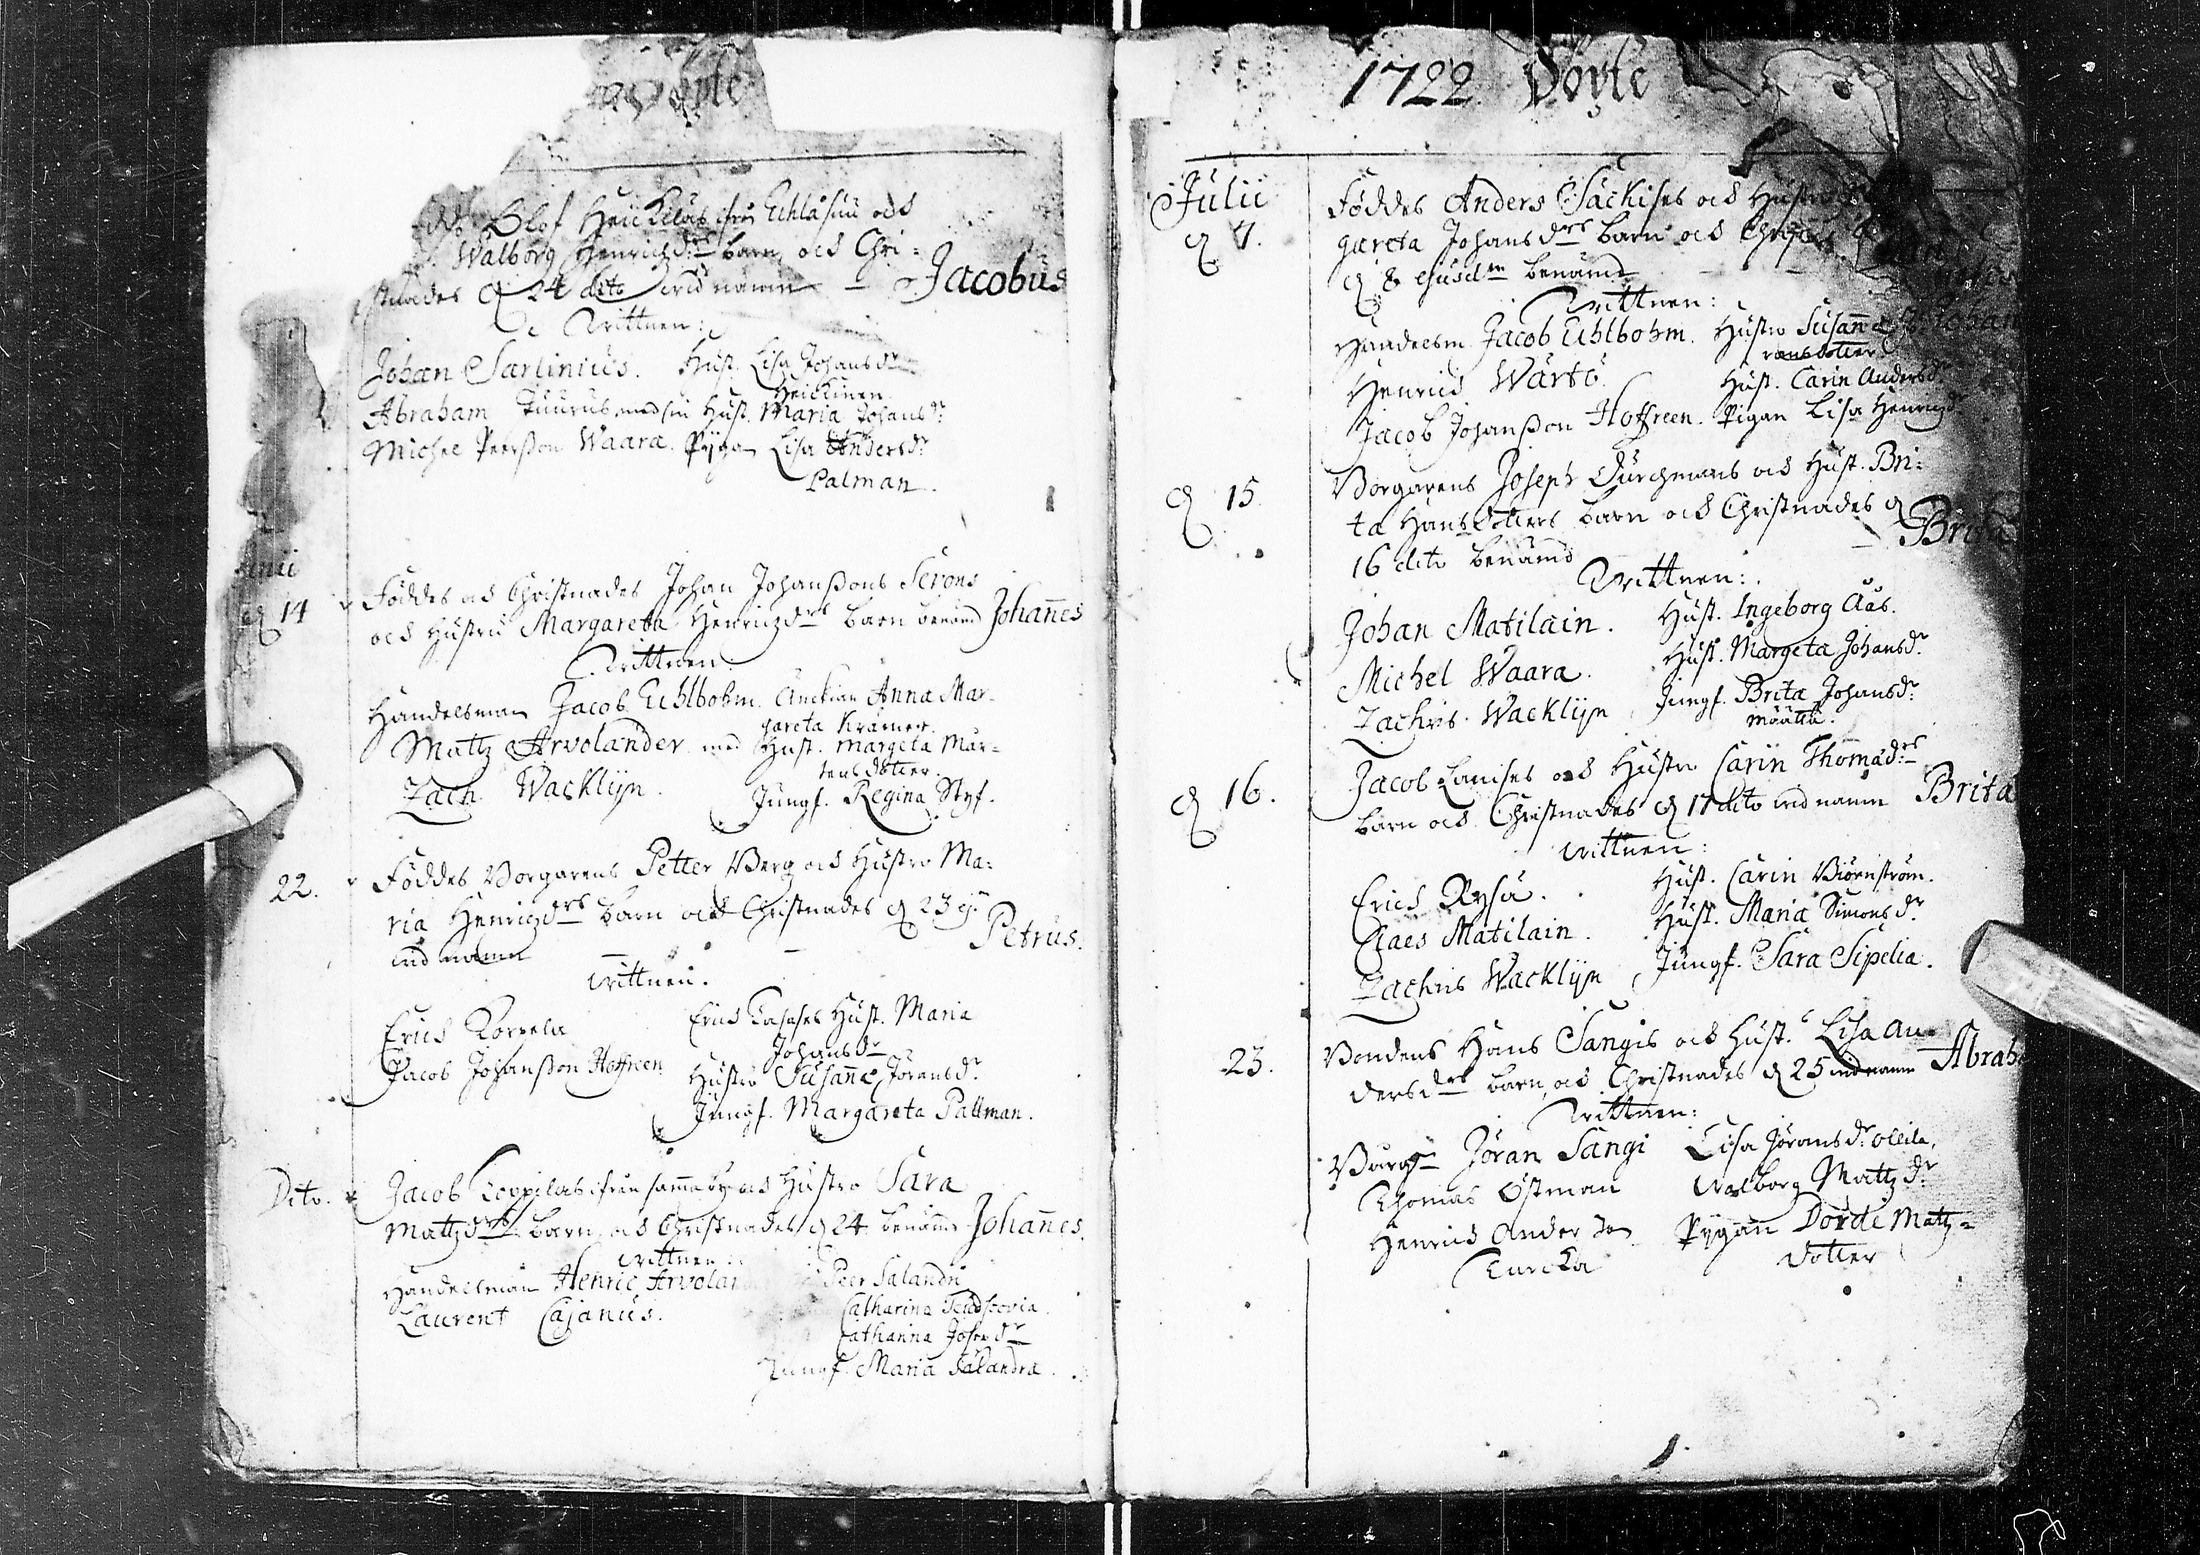 Döpte
Olof Heickiläs ifrån Uhlåsuu och
Wålborg Henrichdrs barn och Chri=
stnades d 24 dito wid namn — Jacobus
Wittnen:
Johan Sarlinius. Hust. Lisa Johansdr
Heickinen
Abraham Tuurus med sin Hust. Maria Johansdr
Michel Peersson Waara. Pÿgan Lisa Andersdr
Palman.
Junii
d 14 Föddes och Christnades Johan Johanssons Serons
och Hustru Margareta Henrizdrs barn benämd Johannes
Wittnen
Handelsman Jacob Uhlbohm. Änckian Anna Mar-
gareta Krämer.
Mattz Arvolander med Hust. Margeta Mår-
tensdotter.
Zach. Wacklijn. Jungf. Regina Styf.
22. Föddes Borgarens Petter Berg och Hustro Ma:
ria Henrizdrs barn och Christnades d 23 ej.
wid namn — Petrus.
Wittnen.
Erich Korpela Erich Hust. Maria
Johansdr
Jacob Johansson Hoffreen Hustro Susanna Joransdr
Jungf. Margareta Pallman.
Dito. Jacob Loppilas ifrån samma by och Hustro Sara
Mattzdrs barn, och Christnades d 24 benämn Johannes.
Wittnen
Handelsman Henric Arvoland Peer Salandri
Laurent Cajanus. Catharina
Catharina Josepdr
Jungf. Maria Salandra.
1722 Döpte
Julii
d 7. Föddes Anders Säckises och Hustro
gareta Johansdrs barn och Christnades
d 8 ejusdm benämd
Wittnen:
Handelsm. Jacob Uhlbohm. Hustro Susanna
ransdotter
Henrich Wärtö. Hust. Carin Andersdr
Jacob Johansson Hoffreen. Pigan Lisa Henrizdr
d 15. Borgarens Joseph Burchmans och Hust. Bri:
ta Hansdotters barn och Christnades d
16 dito benämd — Brita
Wittnen:
Johan Matilain. Hust. Ingeborg Aas.
Michel Waara. Hust. Margeta Johansdr
Zachris Wacklijn Jungf. Brita Johansdr
Määttä.
d 16. Jacob Lauises och Hustro Carin Thomædrs
barn och Christnades d 17 dito wid namn Brita
Wittnen:
Erich Rysä. Hust. Carin Biörnström.
Claes Matilain. Hust. Maria Simonsdr
Zachris Wacklijn Jungf. Sara Sipelia.
23. Bondens Hans Sangis och Hust. Lisa An-
dersdrs barn, och Christnades d 25 wid namn Abrah
Wittnen:
Borg Jöran Sangi Lisa Joransdr Ollila,
Thomas Östman Walborg Mattzdr
Henrich Anderson Pÿgan Dorde Mattz=
Kurcka dotter